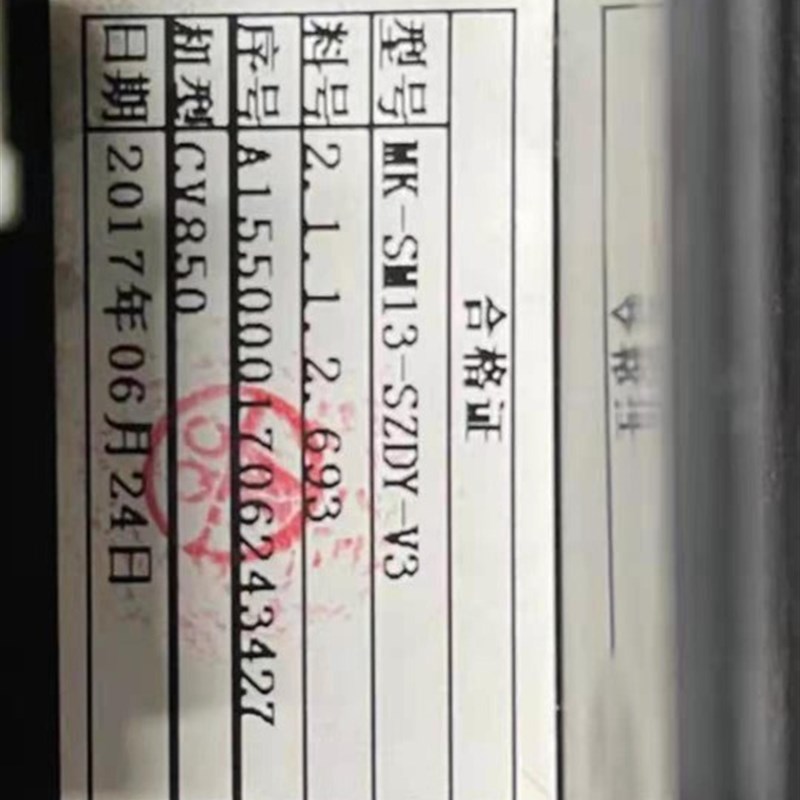 合格证
型号 MK-SM13-SZDY-V3
料号 2.1.1.2.693
序号 A1550001706243427
机型 CV850
日期 2017年06月24日
合格证